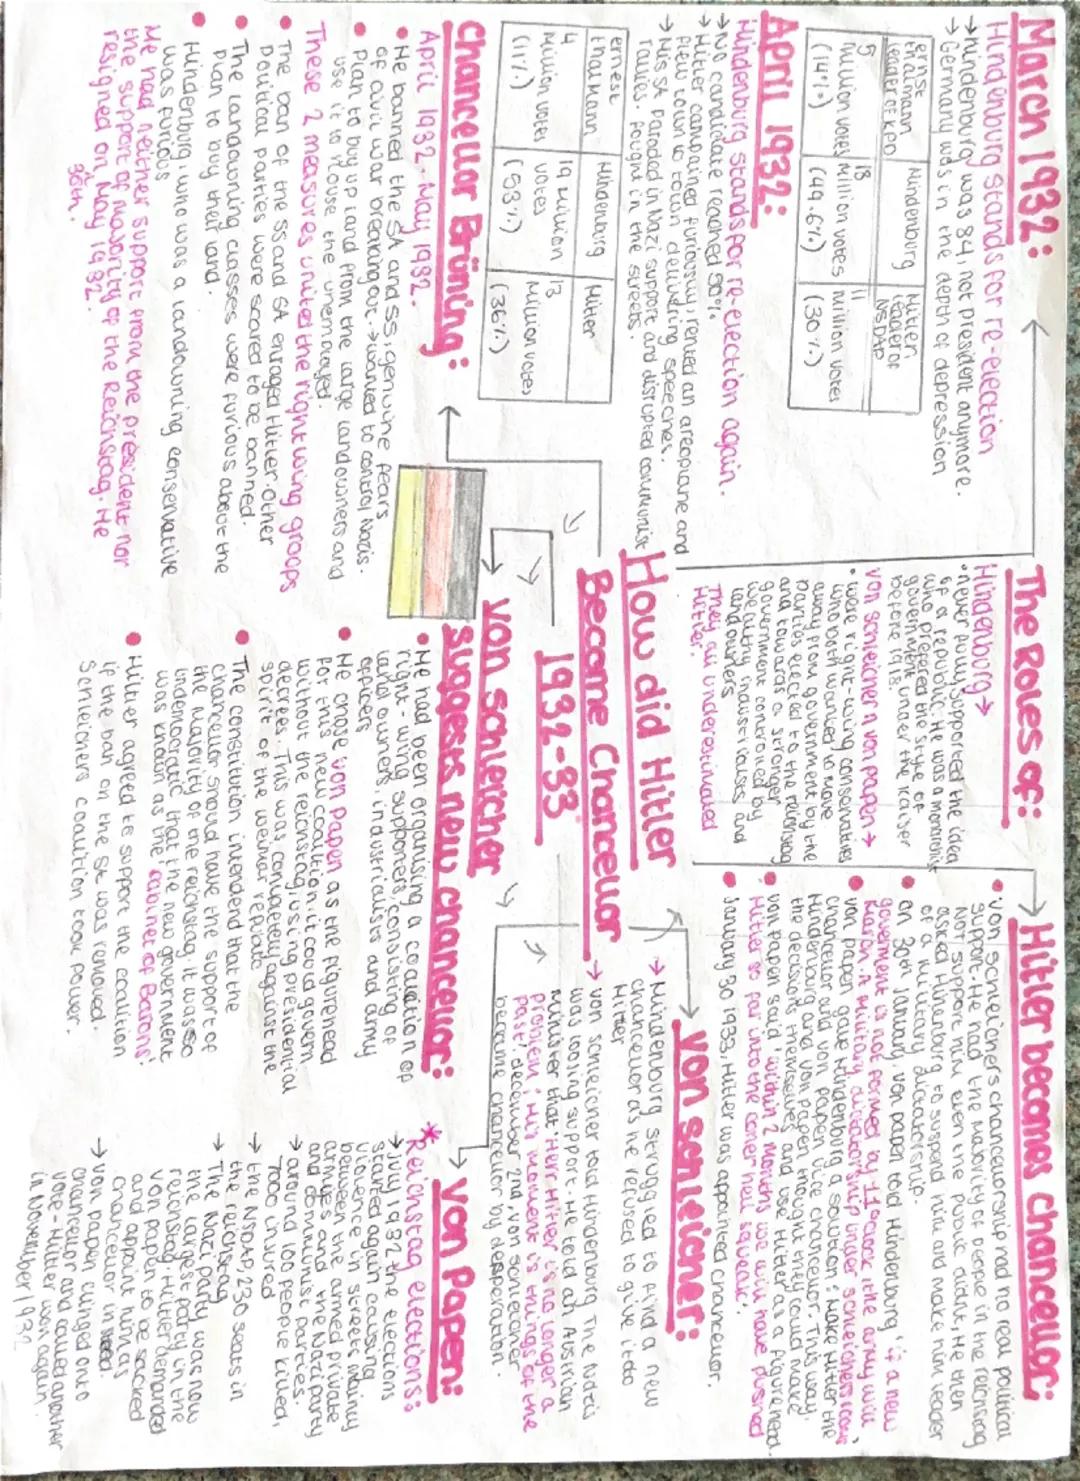 March 1932:
Hindenburg stands for re-election
→ Hindenburg was 84, not president anymore.
→ Germany was in the depth of depression
ernst thalmann leader of KPD
Hindenburg
Hitler leader of NSDAP
5 million votes (14%)
18 million votes (49.6%)
11 million votes (30%)
April 1932:
Hindenburg stands for re-election again.
→ No candidate reached 50%
→ Hitler campained furiously, rented an areoplane and
flew town to town delivering speeches.
→ His SA paraded in Nazi support and disrupted communist
rallies. Fought in the streets.
ernest thalmann
Hindenburg
Hitler
4 million votes (11%)
19 million votes (53%)
13 million votes (36%)
Chancellor Brüning:
April 1932 - May 1932.
• He banned the SA and SS, genuine fears
of civil war breaking out → wanted to control Nazis.
• Plan to buy up land from the large landowners and
use it to house the unemployed.
These 2 measures united the right wing groups
• The ban of the SS and SA enraged Hitler. Other
political parties were scared to be banned.
• The landowning classes were furious about the
plan to buy their land.
• Hindenburg, who was a landowning conservative
was furious
He had neither support from the president nor
the support of majority of the Reichstag. He
resigned on May 1932.
30th.
The Roles of:
Hindenburg →
• never fully supported the idea
of a republic. He was a monarchist
who prefered the style of
government under the Kaiser
before 1918.
von schleicher n von papen →
• were right-wing conservatives
who both wanted to move
away from government by the
parties elected to the reichstag
and towards a stronger
government controlled by
wealthy industrialists and
landowners.
They all underestimated
Hitler.
How did Hitler
Become Chancellor
1932-33
von schleicher
suggests new chancellor:
• He had been organising a coalition of
right-wing supporters, consisting of
land owners, industrialists and army
officers
• He chose von Papen as the figurehead
for this new coalition. it could govern
without the reichstag, using presidential
decrees. This was completely against the
spirit of the weimer republic
• The constitution intended that the
chancellor should have the support of
the majority of the reichstag. it was so
undemocratic that the new government
was known as the 'cabinet of Barons'.
• Hitler agreed to support the coalition
if the ban on the SA was removed.
Schleichers coalition took power.
Hitler becomes chancellor:
• von schleichers chancellorship had no real political
support. He had the majority of people in the reichstag
not support him, even the public didn't. He then
asked Hindenburg to suspend him and make him leader
of a military dictatorship.
• on 30th January, von papen told Hindenburg 'if a new
government is not formed by 11 o'clock, the army will
march. A military dictatorship under schleicher looms'
• von papen gave Hindenburg a solution: make Hitler the
chancellor and von papen vice chancellor. This way,
Hindenburg and von papen thought they could make
the decisions themselves and use Hitler as a figurehead.
• von papen said 'within 2 months we will have pushed
Hitler so far into the corner he'll squeak'.
• January 30 1933, Hitler was appointed chancellor.
von schleicher:
→ Hindenburg struggled to find a new
chancellor as he refused to give it to
Hitler
→ von schleicher told Hindenburg the Nazis
was loosing support. He told an Austrian
minister that 'Herr Hitler is no longer a
problem, his moment is things of the
past'. december 2nd, von schleicher
became chancellor by desperation.
von Papen:
*Reichstag elections:
→ July 1932 the elections
started again causing
violence in streets mainly
between the armed private
armies and the Nazi party
and communist parties.
→ around 100 people killed,
7000 injured
→ the NSDAP, 230 seats in
the reichstag
→ The Nazi party was now
the largest party in the
reichstag. Hitler demanded
von papen to be sacked
and appoint him as
chancellor instead
→ von papen clinged onto
chancellor and called another
vote - Hitler won again.
in November 1932